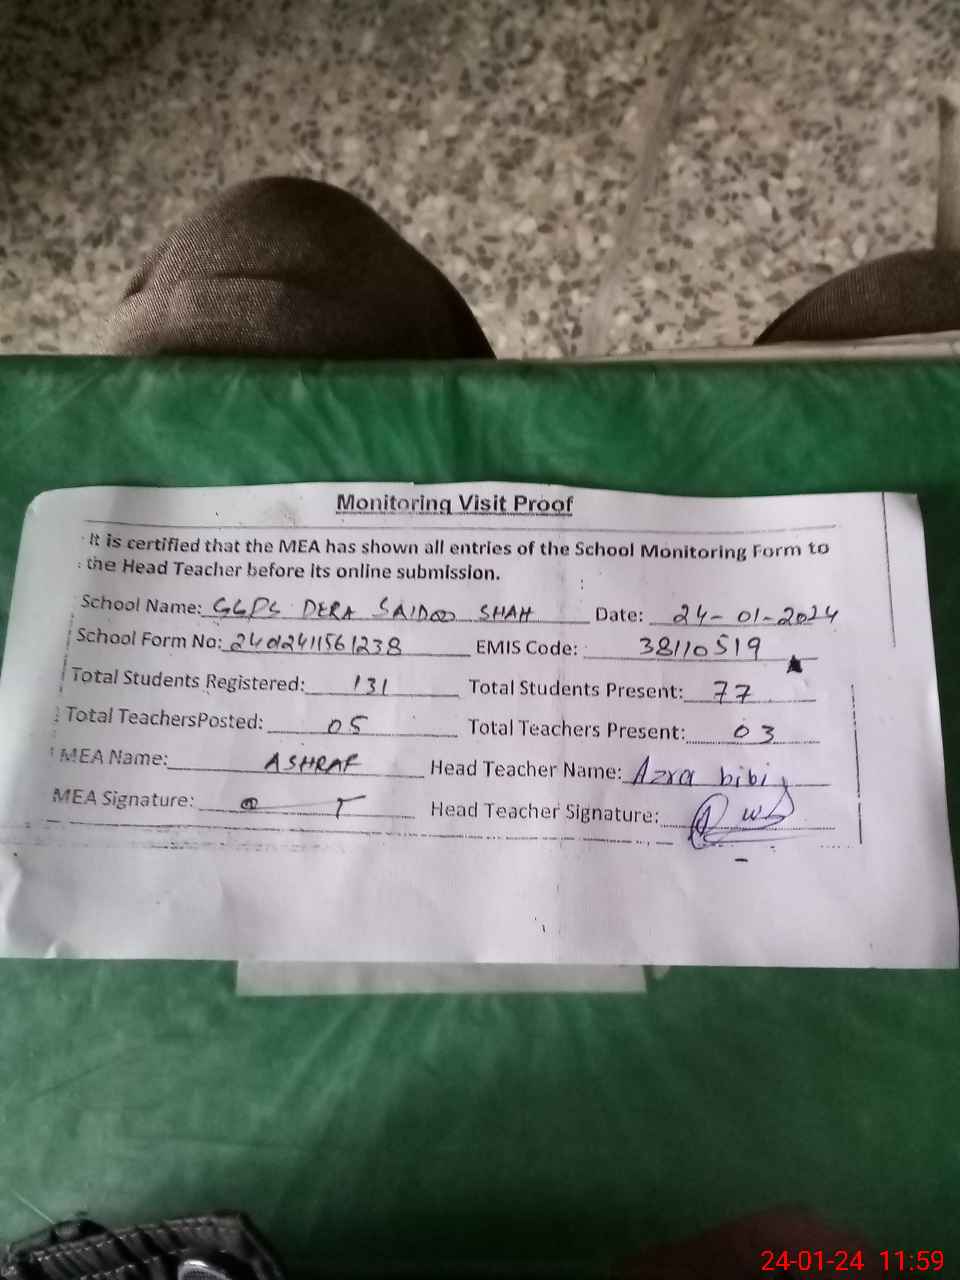 Monitoring Visit Proof
It is certified that the MEA has shown all entries of the School Monitoring Form to
the Head Teacher before its online submission.
School Name: GGPS DERA SAIDOO SHAH Date: 24-01-2024
School Form No: 24012411561238 EMIS Code: 38110519
Total Students Registered: 131 Total Students Present: 77
Total TeachersPosted: 05 Total Teachers Present: 03
MEA Name: ASHRAF Head Teacher Name: Azra bibi
MEA Signature: Head Teacher Signature:
24-01-24 11:59